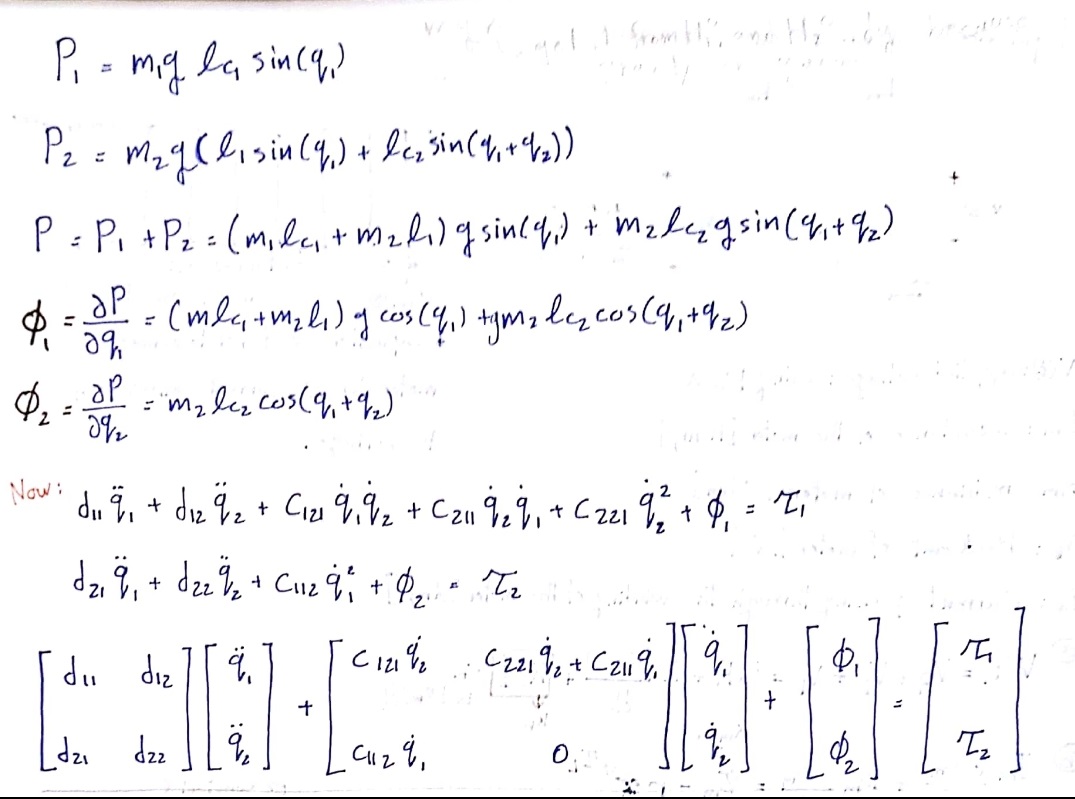 P₁ = m₁g lc₁ sin(q₁)
P₂ = m₂g(l₁ sin(q₁) + lc₂ sin(q₁+q₂))
P = P₁ + P₂ = (m₁lc₁ + m₂l₁) g sin(q₁) + m₂lc₂ g sin(q₁+q₂)
ϕ₁ = ∂P/∂q₁ = (mlc₁ + m₂l₁) g cos(q₁) + gm₂ lc₂ cos(q₁+q₂)
ϕ₂ = ∂P/∂q₂ = m₂ lc₂ cos(q₁+q₂)
Now: d₁₁ q̈₁ + d₁₂ q̈₂ + C₁₂₁ q̇₁q̇₂ + C₂₁₁ q̇₂q̇₁ + C₂₂₁ q̇₂² + ϕ₁ = τ₁
d₂₁ q̈₁ + d₂₂ q̈₂ + C₁₁₂ q̇₁² + ϕ₂ = τ₂
[d₁₁ d₁₂; d₂₁ d₂₂] [q̈₁; q̈₂] + [C₁₂₁ q̇₂ C₂₂₁ q̇₂ + C₂₁₁ q̇₁; C₁₁₂ q̇₁ 0] [q̇₁; q̇₂] + [ϕ₁; ϕ₂] = [τ₁; τ₂]